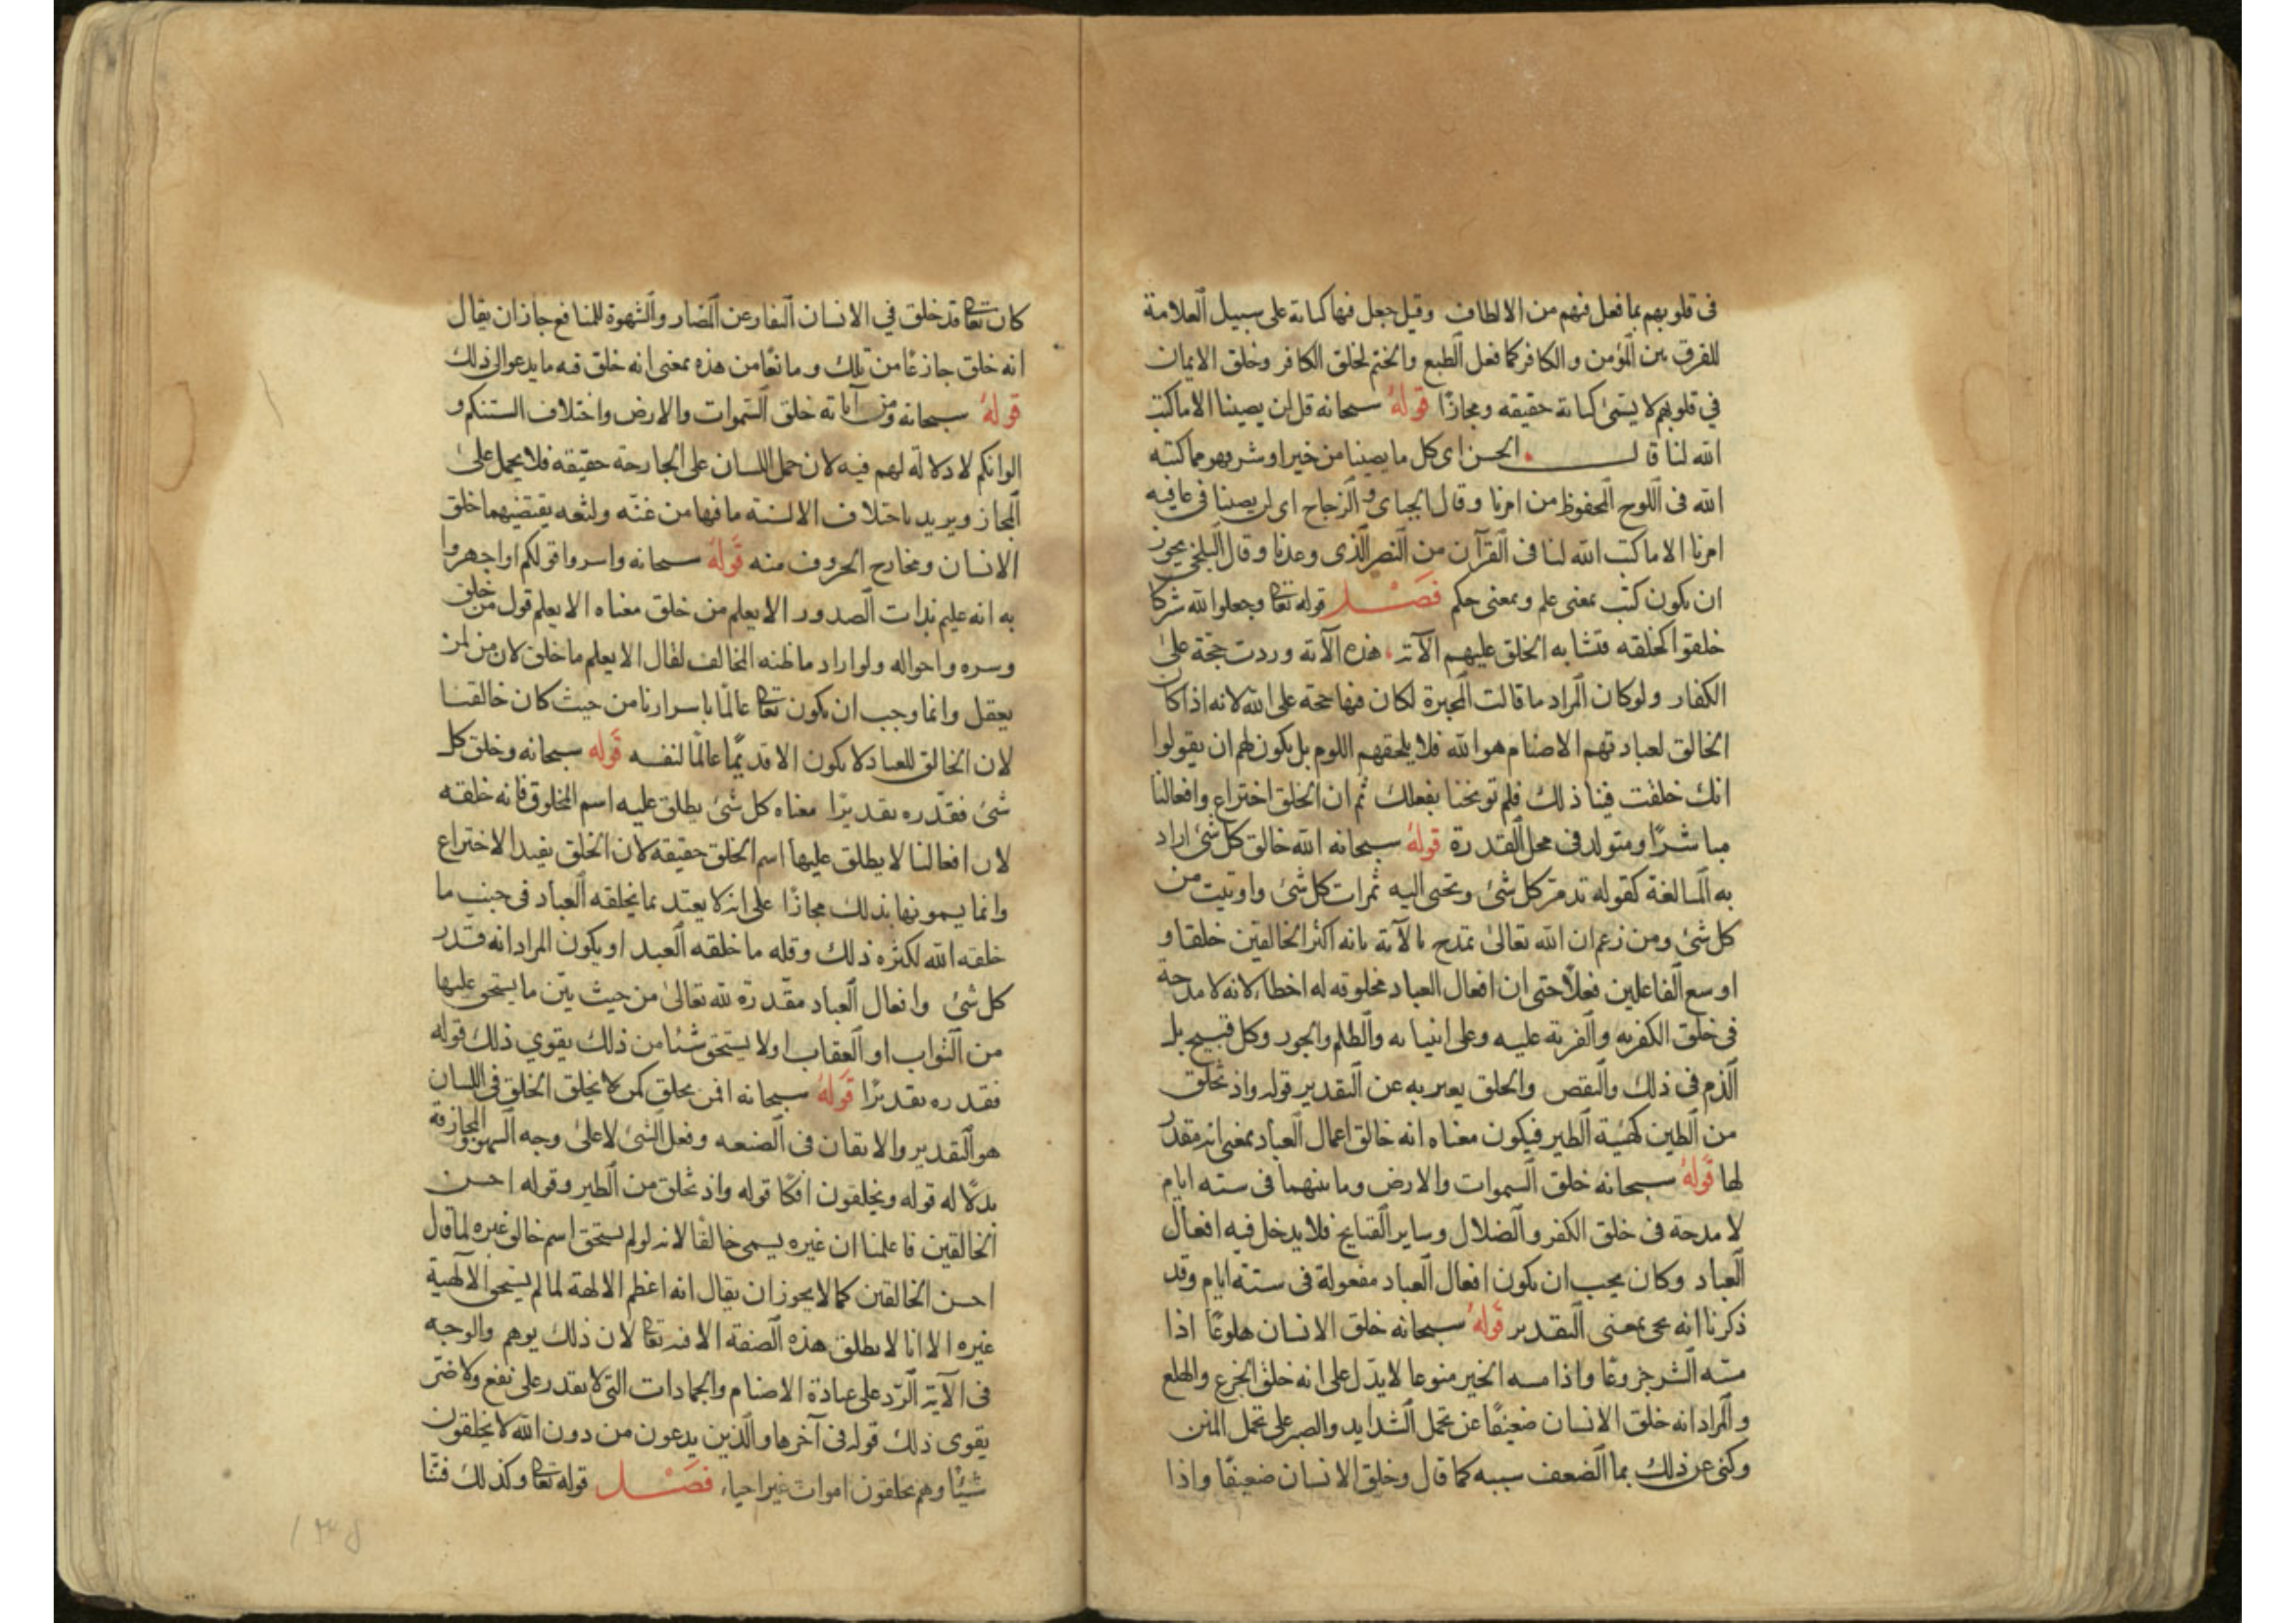 في قلوبهم بما فعل فيهم من الالطاف وقيل جعل فيها كتابة على سبيل العلامة
للفرق بين المؤمن والكافر كما فعل الطبع والختم لخلق الكافر وخلق الايمان
في قلوبهم لا يسمى كتابة حقيقه ومجازا قوله سبحانه قل لن يصيبنا الا ما كتب
الله لنا قال الحسن اى كل ما يصيبنا من خير او شر فهو مما كتبه
الله فى اللوح المحفوظ من امرنا وقال الجباى والزجاج اى لن يصيبنا فى عاقبه
امرنا الا ما كتب الله لنا فى القرآن من النصر الذى وعدنا وقال البلخى يجوز
ان يكون كتب بمعنى علم وبمعنى حكم فصل قوله تعالى وجعلوا لله شركا
خلقوا كخلقه فتشابه الخلق عليهم الآية هذه الآية وردت حجة على
الكفار ولو كان المراد ما قالت المجبرة لكان فيها حجة على الله لانه اذا كان
الخالق لعبادتهم الاصنام هو الله فلا يلحقهم اللوم بل يكون لهم ان يقولوا
انك خلقت فينا ذلك فلم توبخنا بفعلك ثم ان الخلق اختراع وافعالنا
مباشرا ومتولد فى محل القدرة قوله سبحانه الله خالق كل شئ اراد
به المبالغة كقوله تدمر كل شئ وتجبى اليه ثمرات كل شئ واوتيت من
كل شئ ومن زعم ان الله تعالى تمدح بالآية بانه اكثر الخالقين خلقا و
اوسع الفاعلين فعلا حتى ان افعال العباد مخلوقه له اخطا لانه لا مدحة
فى خلق الكفر به والفرية عليه وعلى انبيائه والظلم والجور وكل قبيح بل
الذم فى ذلك والنقص والخلق يعبر به عن التقدير قوله واذ تخلق
من الطين كهيئة الطير فيكون معناه انه خالق اعمال العباد بمعنى انه مقدر
لها قوله سبحانه خلق السموات والارض وما بينهما فى ستة ايام
لا مدحة فى خلق الكفر والضلال وساير القبايح فلا يدخل فيه افعال
العباد وكان يجب ان يكون افعال العباد مفعولة فى ستة ايام وقد
ذكرنا انه يجى بمعنى التقدير قوله سبحانه خلق الانسان هلوعا اذا
مسه الشر جزوعا واذا مسه الخير منوعا لا يدل على انه خلق الجزع والهلع
والمراد انه خلق الانسان ضعيفا عن تحمل الشدايد والصبر على تحمل المنن
وكنى عن ذلك بما الضعف سببه كما قال وخلق الانسان ضعيفا واذا
كان تعالى قد خلق في الانسان النفار عن المضار والشهوة للمنافع جاز ان يقال
انه خلق جازعا من تلك ومانعا من هذه بمعنى انه خلق فيه ما يدعو الى ذلك
قوله سبحانه ومن آياته خلق السموات والارض واختلاف السنتكم و
الوانكم لا دلالة لهم فيه لان حمل اللسان على الجارحة حقيقه فلا يحمل على
المجاز ويريد باختلاف الالسنة ما فيها من غنه ولثغه يقتضيهما خلق
الانسان ومخارج الحروف منه قوله سبحانه واسروا قولكم او اجهروا
به انه عليم بذات الصدور الا يعلم من خلق معناه الا يعلم قول من خلق
وسره واحواله ولو اراد ما ظنه المخالف لقال الا يعلم ما خلق لان من لمن
يعقل وانما وجب ان يكون تعالى عالما باسرارنا من حيث كان خالقنا
لان الخالق للعباد لا يكون الا قديما عالما لنفسه قوله سبحانه وخلق كل
شئ فقدره تقديرا معناه كل شئ يطلق عليه اسم المخلوق فانه خلقه
لان افعالنا لا يطلق عليها اسم الخلق حقيقة لان الخلق يفيد الاختراع
وانما يسمونها بذلك مجازا على انه لا يعتد بما يخلقه العباد فى جنب ما
خلقه الله لكثره ذلك وقله ما خلقه العبد او يكون المراد انه قدر
كل شئ وافعال العباد مقدرة لله تعالى من حيث بين ما يستحق عليها
من الثواب او العقاب او لا يستحق شيئا من ذلك يقوي ذلك قوله
فقدره تقديرا قوله سبحانه افمن يخلق كمن لا يخلق الخلق فى اللسان
هو التقدير والاتقان فى الصنعه وفعل الشئ لا على وجه السهو والمجازفة
بدلالة قوله ويخلقون افكا قوله واذ تخلق من الطير وقوله احسن
الخالقين فاعلمنا ان غيره يسمى خالقا لانه لو لم يستحق اسم خالق غيره لما قال
احسن الخالقين كما لا يجوز ان يقال انه اعظم الالهة لما لم يستحق الآلهية
غيره الا انا لا نطلق هذه الصفة الا فيه تعالى لان ذلك يوهم والوجه
فى الآية الرد على عبادة الاصنام والجمادات التى لا تقدر على نفع ولا ضر
يقوى ذلك قوله فى آخرها والذين يدعون من دون الله لا يخلقون
شيئا وهم يخلقون اموات غير احياء فصل قوله تعالى وكذلك فتنا